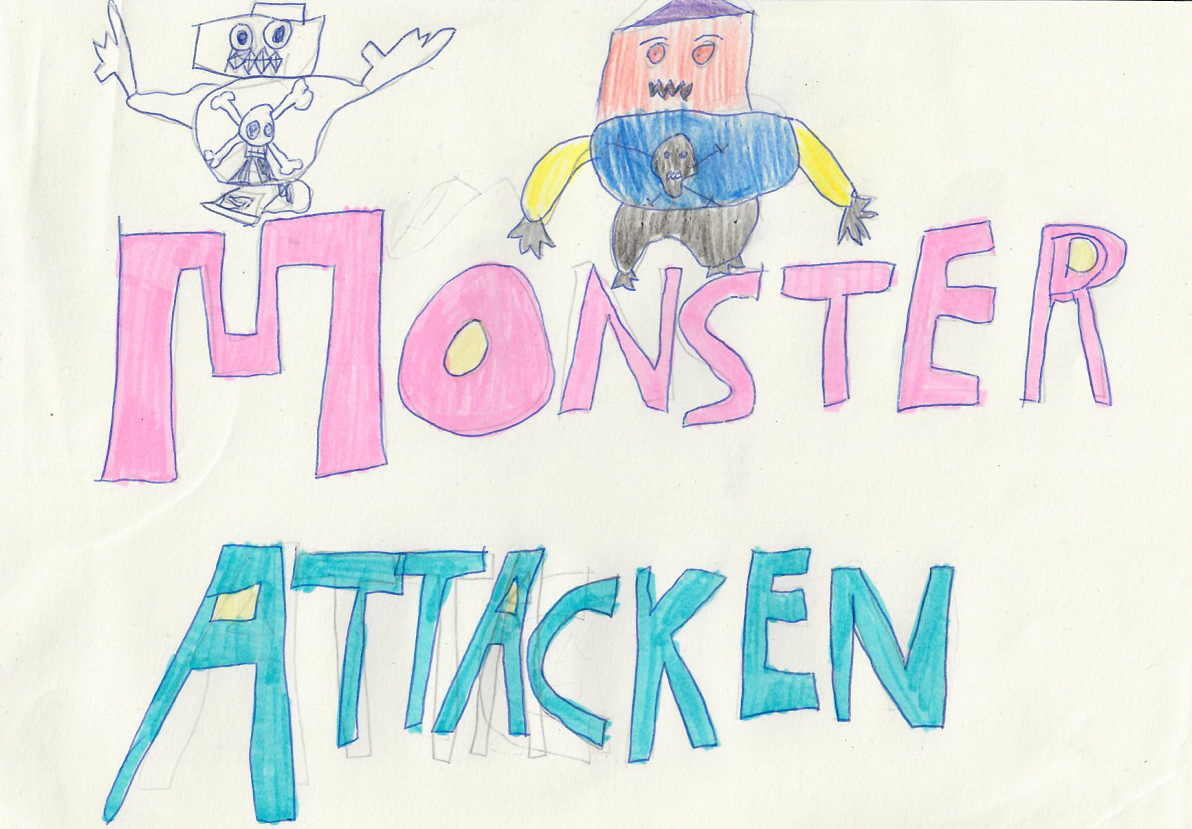 MONSTER
ATTACKEN